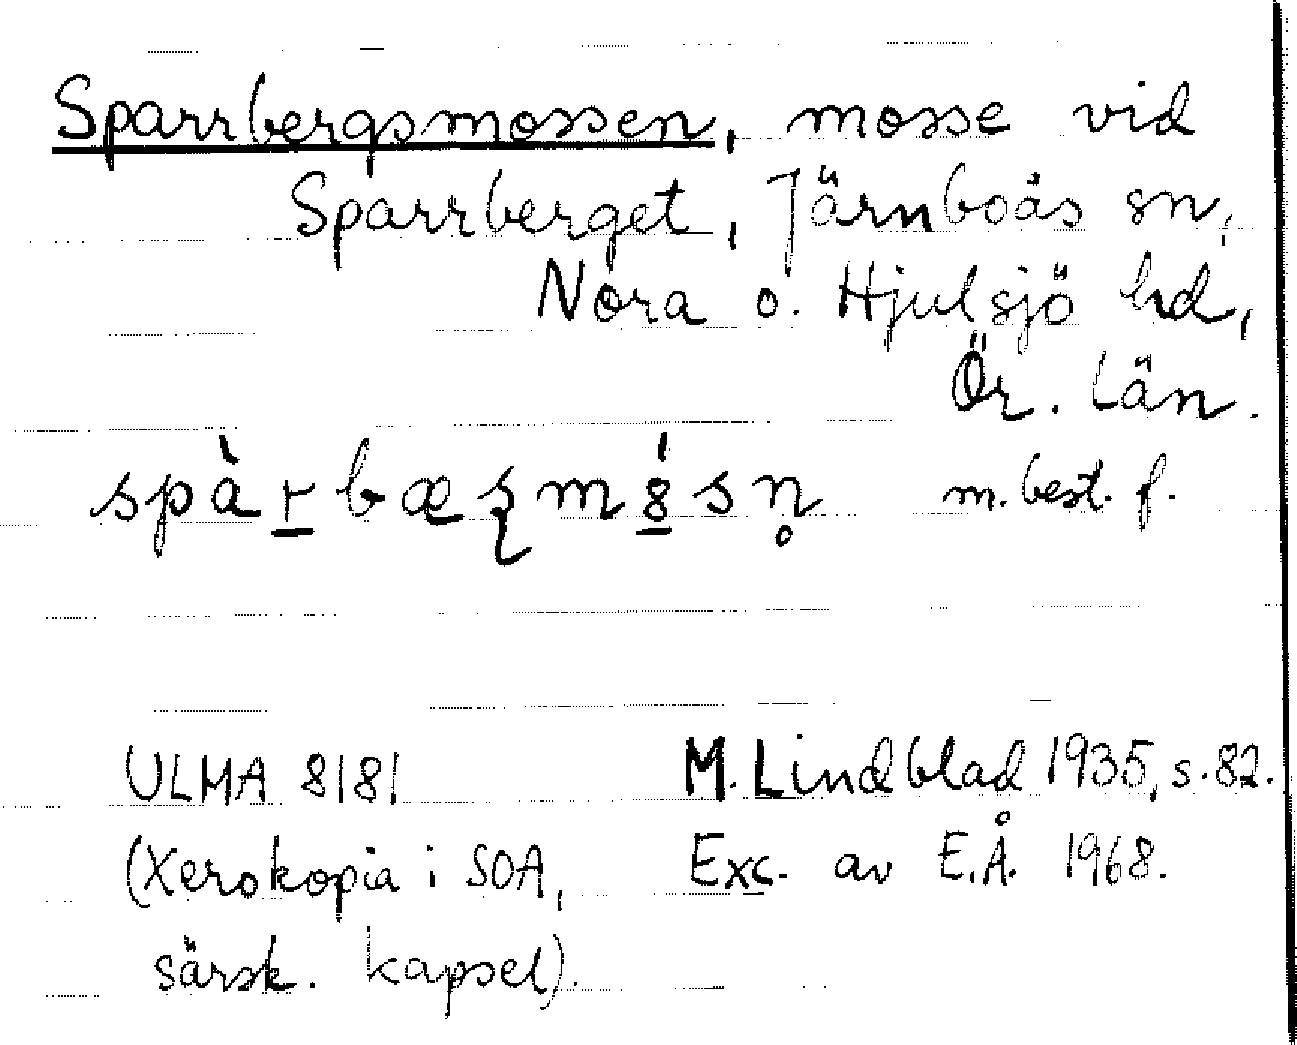 Sparrbergsmossen, mosse vid
Sparrberget, Järnboås sn,
Nora o. Hjulsjö hd,
Ör. län.
m. best. f.
ULMA 8181 M. Lindblad 1935, s. 82.
(Xerokopia i SOA, Exc. av E.Å. 1968.
särsk. kapsel).